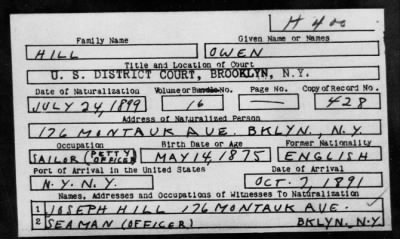 H 400
Family Name Given Name or Names
HILL OWEN
Title and Location of Court
U. S. DISTRICT COURT, BROOKLYN, N.Y.
Date of Naturalization Volume or Bundle No. Page No. Copy of Record No.
JULY 24, 1899 16 — 428
Address of Naturalized Person
176 MONTAUK AVE. BKLYN., N.Y.
Occupation Birth Date or Age Former Nationality
SAILOR (PETTY OFFICER) MAY 14, 1875 ENGLISH
Port of Arrival in the United States Date of Arrival
N.Y. N.Y. OCT. 7, 1891
Names, Addresses and Occupations of Witnesses To Naturalization
1 JOSEPH HILL 176 MONTAUK AVE.
2 SEAMAN (OFFICER) BKLYN, N.Y